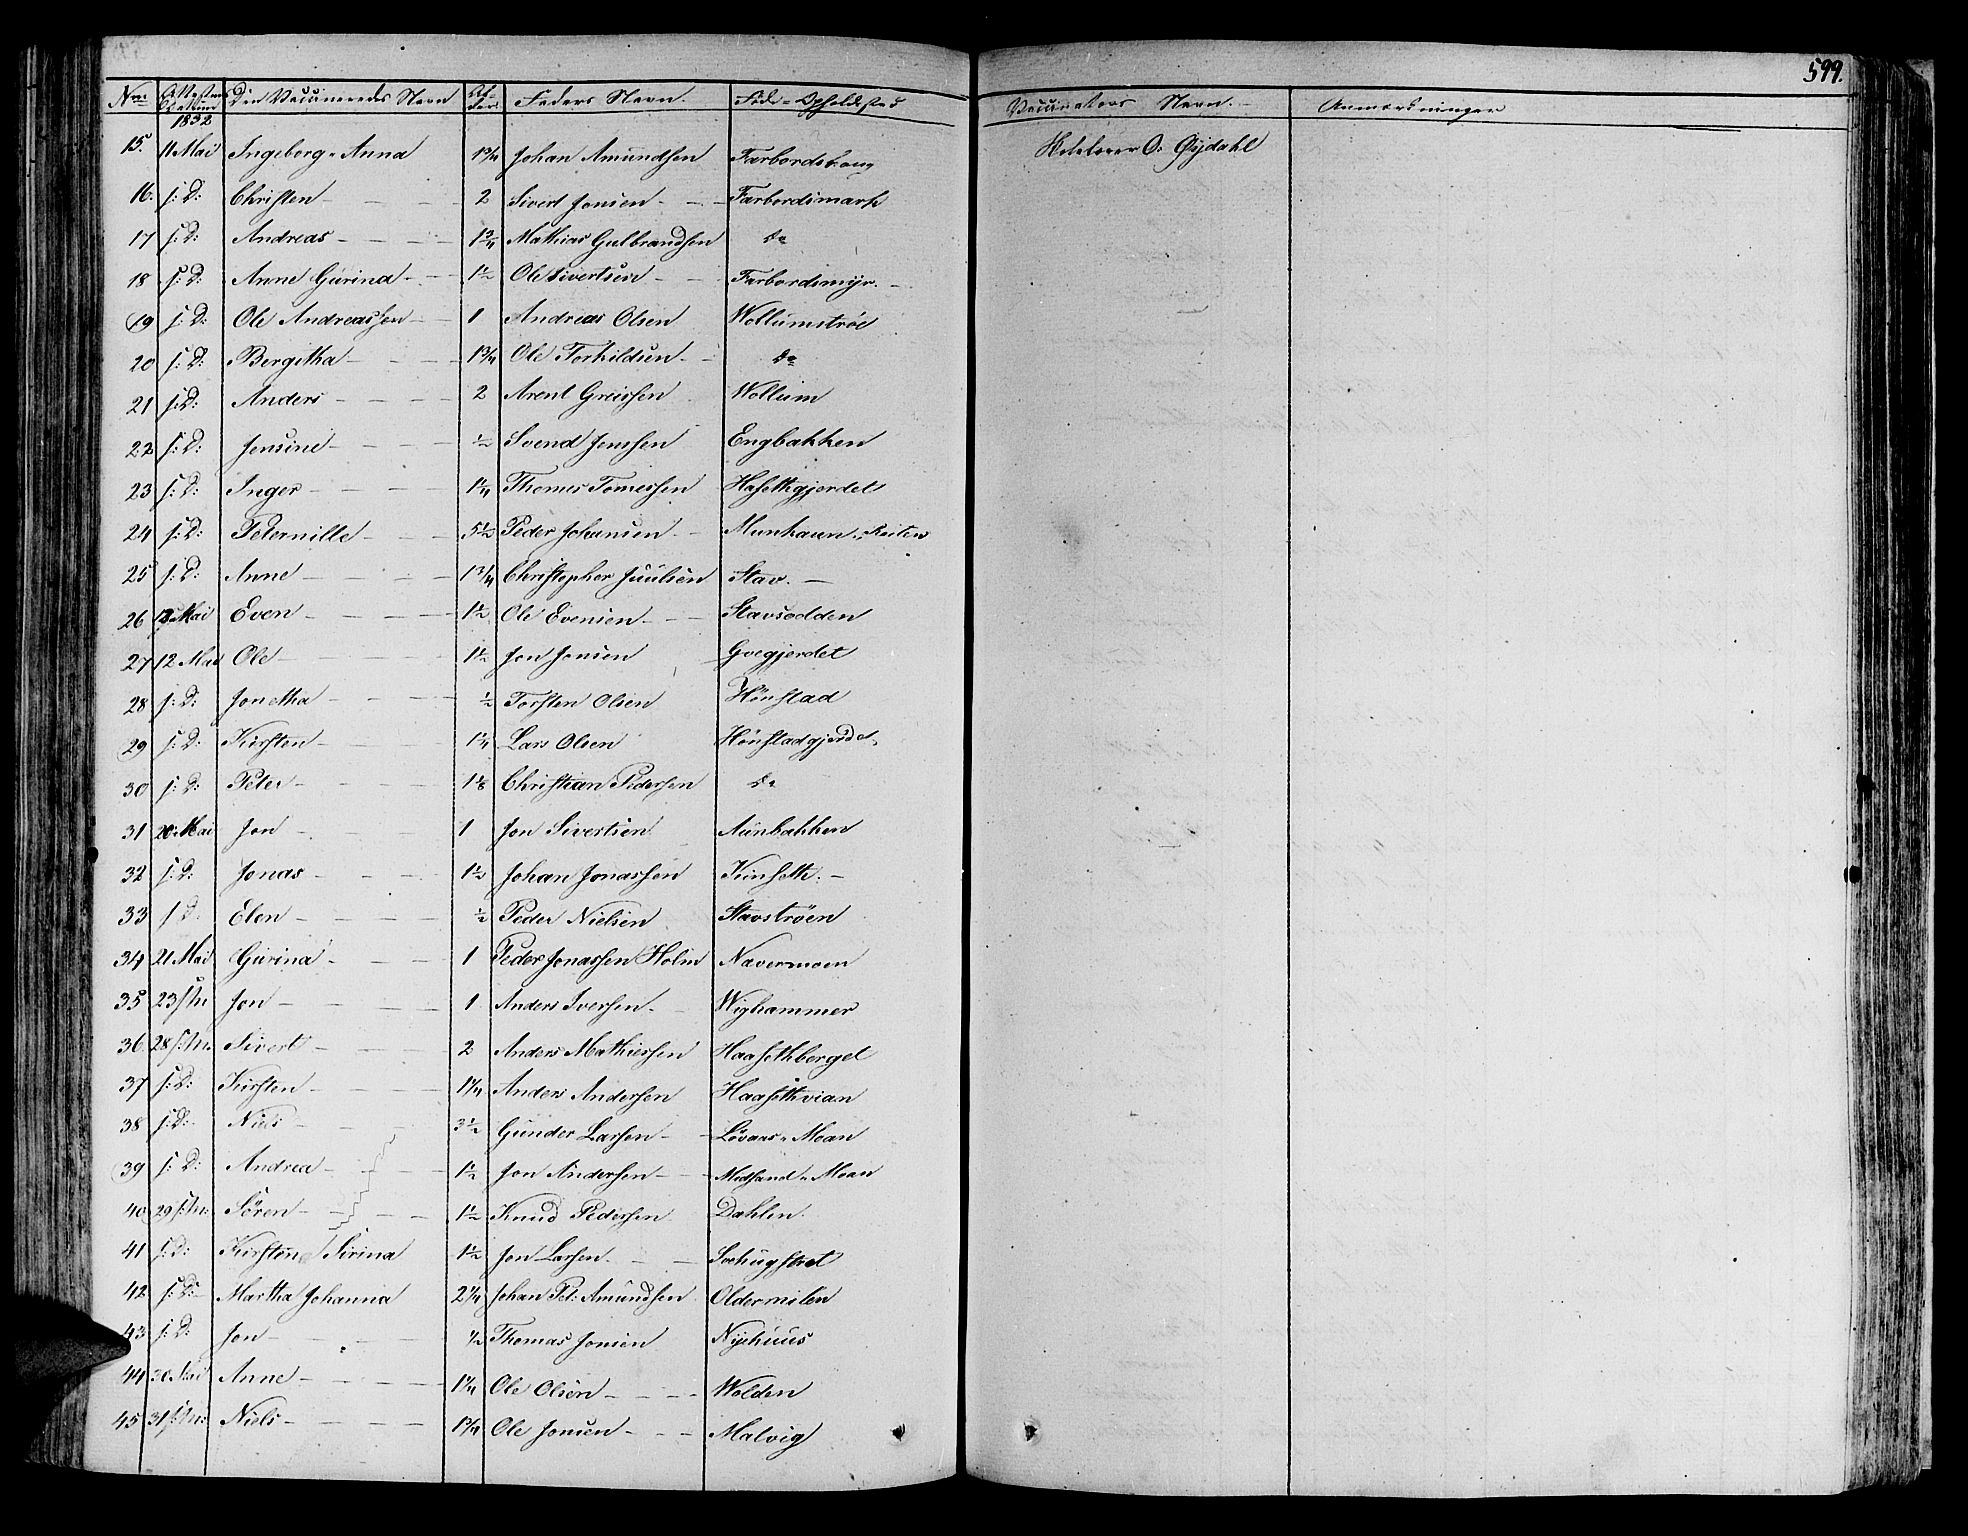 599.
No: Attestens Datum Den Vaccineredes Navn Alder Faders Navn. Føde- Opholdsted Vaccinators Navn. Anmærkninger
1832
15. 11 Mai Ingeborg Anna 1 3/4 Johan Amundsen Farbordsbraug Kirkesanger O: Øijdahl
16. s: D: Christen 2 Sivert Jonsen Farbordsmark
17 s: D: Andreas 1 3/4 Mathias Gulbrandsen do
18 s: D: Anne Gurina 1 1/2 Ole Sivertsen Farbordsmyr
19 s: D: Ole Andreassen 1 Andreas Olsen Wollumstrøe
20 s: D: Bergitha 1 3/4 Ole Torkildsen do
21 s: D: Anders 2 Arent Greissen Wollum
22 s: D: Jensine 1/2 Svend Jenssen Engbakken
23 s: D: Inger 1 1/4 Thomes Tomessen Hasethgjerdet
24 s: D: Peternille 5 1/2 Peder Johansen Munkaun Reiten
25 s: D: Anne 1 3/4 Christopher Juulsen Stav.
26 12 Mai Even 1 1/2 Ole Evensen Stavsodden
27 12 Mai Ole 1 1/2 Jon Jonsen Gvegjerdet
28 s: D: Jonetha 1/2 Torsten Olsen Hønstad
29 s: D: Kirsten 1 1/4 Lars Olsen Hønstadgjerdet
30 s: D: Peter 1 1/8 Christian Pedersen do
31 20 Mai Jon 1 Jon Sivertsen Aunbakken
32 s: D: Jonas 1 1/2 Johan Jonassen Kinseth.
33 s D: Elen 1/2 Peder Nielsen Stavstrøen
34 21 Mai Gurina 1 Peder Jonassen Holm Navermoen
35 23 s: M. Jon 1 Anders Iversen Wighammer
36. 28 s: M. Sivert 2 Anders Mathiessen Haasethberget
37 s: D: Kirsten 1 1/4 Anders Andersen Haasethvian
38 s: D: Niels 3 1/2 Gunder Larsen Løvaas Moan
39 s: D: Andrea 1 1/2 Jon Andersen Midsand Moan
40 29 s: M: Søren 1 1/2 Knud Pedersen Dahlen.
41 s: D: Kirsten Sirina 1 1/2 Jon Larsen.
42 s: D: Martha Johanna 2 1/4 Johan Pet: Amundsen Oldermilen
43 s: D: Jon 1/2 Thomas Jonsen Nyehuus
44 30 Mai Anne 1 1/4 Ole Olsen Wolden
45 31 s: M: Niels 1 3/4 Ole Jonsen Malvig